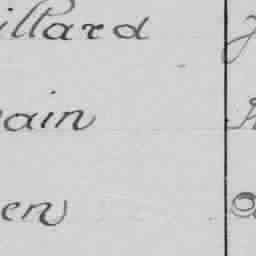 illard
ain
en